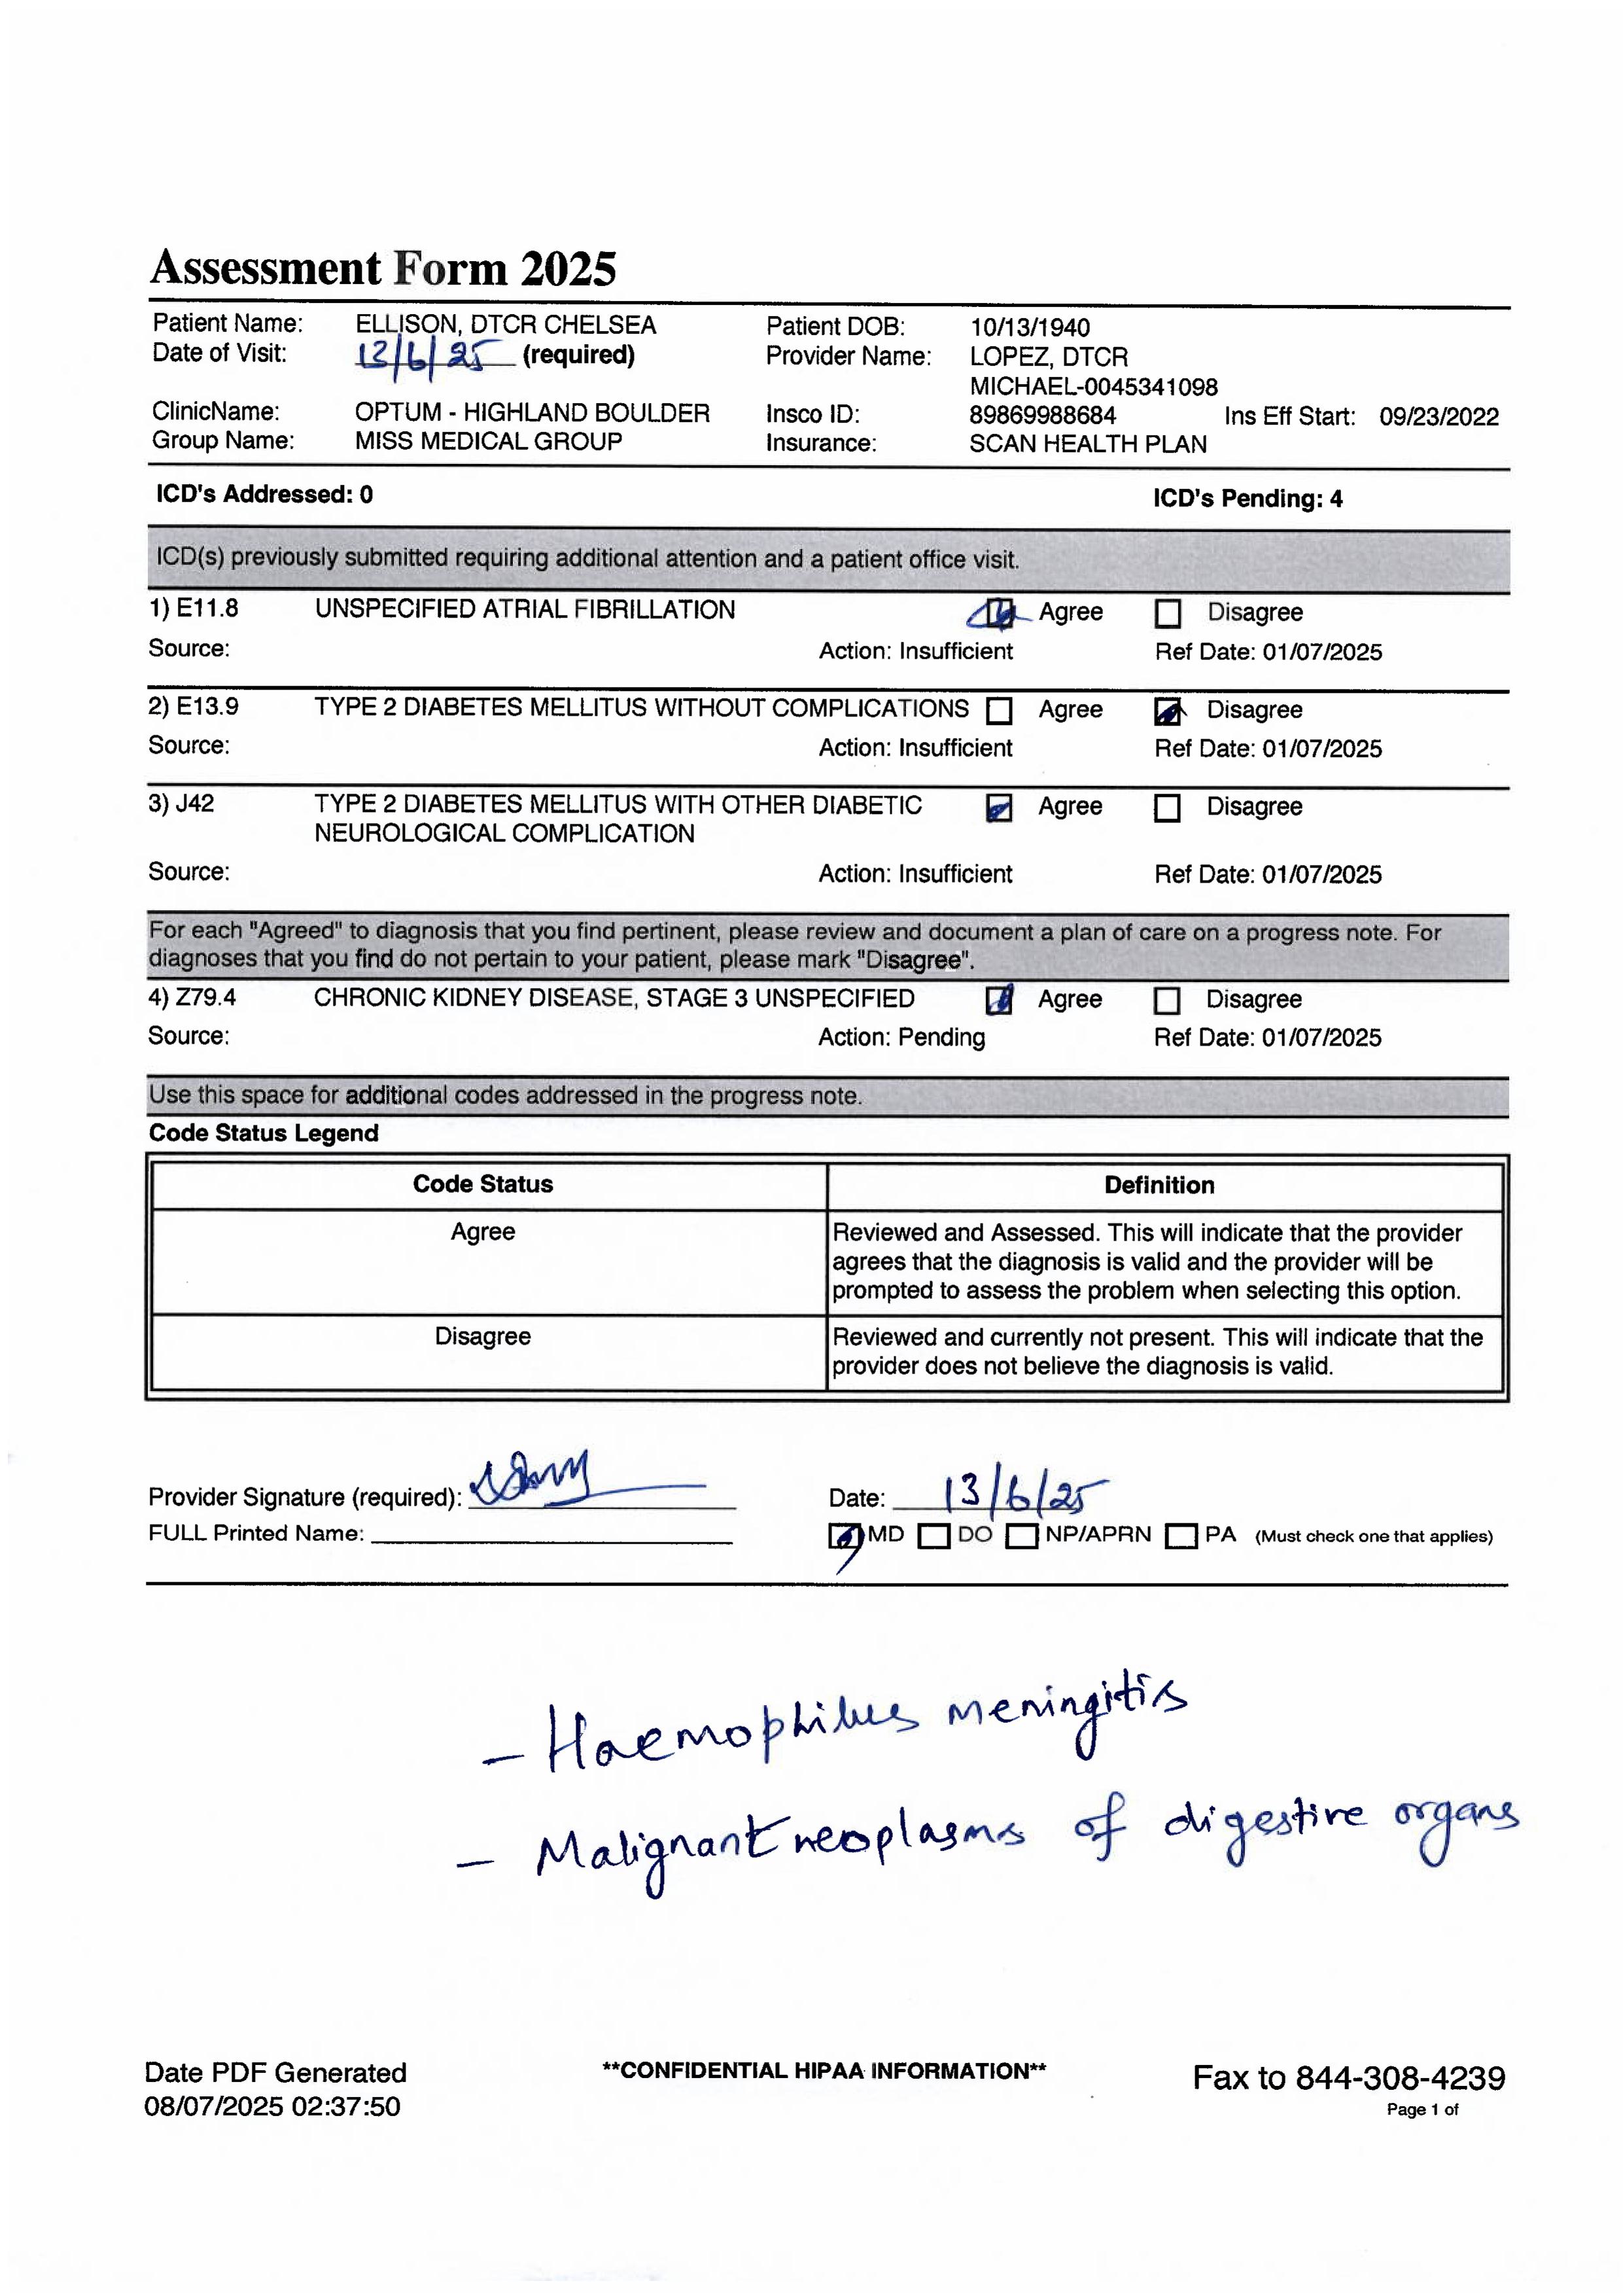 Assessment Form 2025
Patient Name: ELLISON, DTCR CHELSEA Patient DOB: 10/13/1940
Date of Visit: 13/6/25 (required) Provider Name: LOPEZ, DTCR
MICHAEL-0045341098
ClinicName: OPTUM - HIGHLAND BOULDER Insco ID: 89869988684 Ins Eff Start: 09/23/2022
Group Name: MISS MEDICAL GROUP Insurance: SCAN HEALTH PLAN
ICD's Addressed: 0 ICD's Pending: 4
ICD(s) previously submitted requiring additional attention and a patient office visit.
1) E11.8 UNSPECIFIED ATRIAL FIBRILLATION Agree Disagree
Source: Action: Insufficient Ref Date: 01/07/2025
2) E13.9 TYPE 2 DIABETES MELLITUS WITHOUT COMPLICATIONS Agree Disagree
Source: Action: Insufficient Ref Date: 01/07/2025
3) J42 TYPE 2 DIABETES MELLITUS WITH OTHER DIABETIC Agree Disagree
NEUROLOGICAL COMPLICATION
Source: Action: Insufficient Ref Date: 01/07/2025
For each "Agreed" to diagnosis that you find pertinent, please review and document a plan of care on a progress note. For
diagnoses that you find do not pertain to your patient, please mark "Disagree".
4) Z79.4 CHRONIC KIDNEY DISEASE, STAGE 3 UNSPECIFIED Agree Disagree
Source: Action: Pending Ref Date: 01/07/2025
Use this space for additional codes addressed in the progress note.
Code Status Legend
Code Status Definition
Agree Reviewed and Assessed. This will indicate that the provider
agrees that the diagnosis is valid and the provider will be
prompted to assess the problem when selecting this option.
Disagree Reviewed and currently not present. This will indicate that the
provider does not believe the diagnosis is valid.
Provider Signature (required): Date: 13/6/25
FULL Printed Name: MD DO NP/APRN PA (Must check one that applies)
- Haemophilus meningitis
- Malignant neoplasms of digestive organs
Date PDF Generated **CONFIDENTIAL HIPAA INFORMATION** Fax to 844-308-4239
08/07/2025 02:37:50 Page 1 of